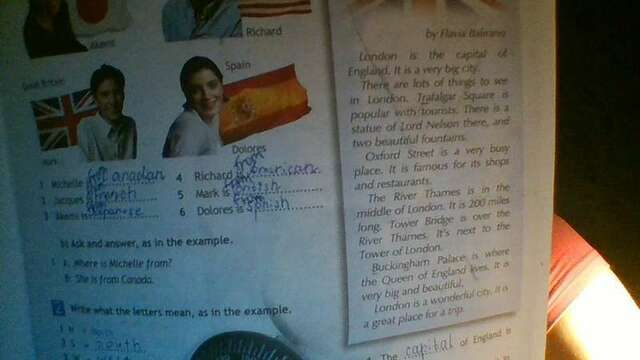 Akemi
Richard
Great Britain
Spain
Mark
Dolores
1 Michelle
2 Jacques
French
3 Akemi is
Japanese
4 Richard is
from
American
5 Mark is
British
6 Dolores is
from
Spanish
b) Ask and answer, as in the example.
A: Where is Michelle from?
B: She is from Canada.
Write what the letters mean, as in the example.
south
by Flavia
London is the capital of
England. It is a very big city.
There are lots of things to see
in London. Trafalgar Square is
popular with tourists. There is a
statue of Lord Nelson there, and
two beautiful fountains.
Oxford Street is a very busy
place. It is famous for its shops
and restaurants.
The River Thames is in the
middle of London. It is 200 miles
long. Tower Bridge is over the
River Thames. It's next to the
Tower of London.
Buckingham Palace is where
the Queen of England lives. It is
very big and beautiful.
London is a wonderful city. It is
a great place for a trip.
The capital of England is